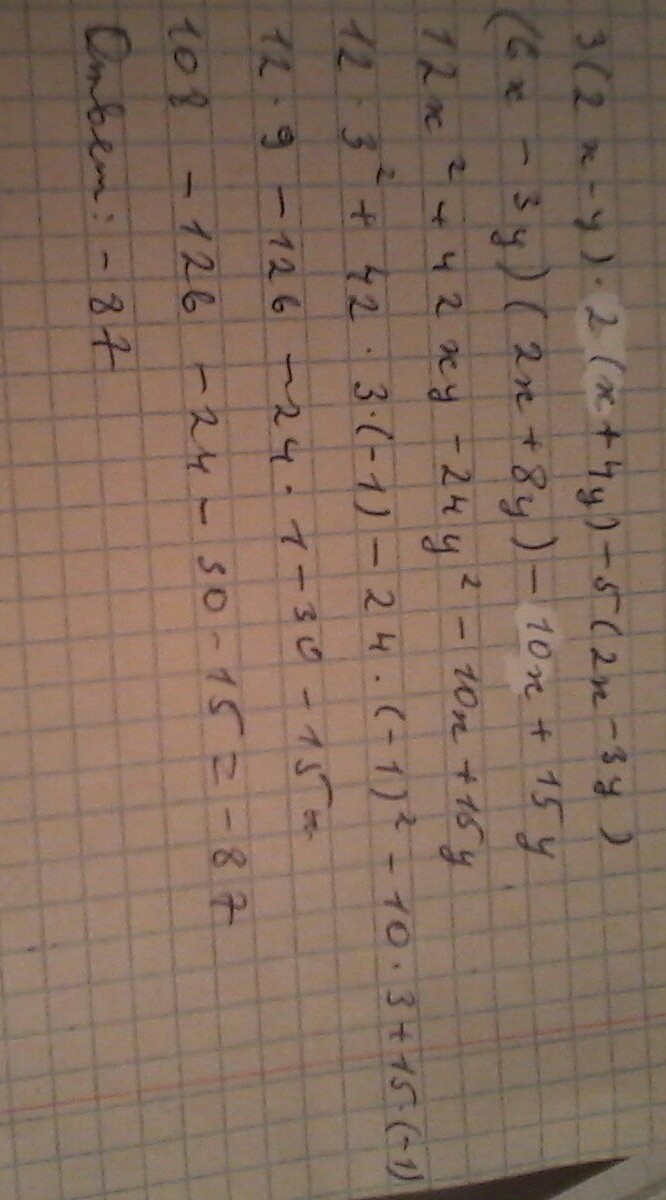 3(2x-y)·2(x+4y)-5(2x-3y)
(6x-3y)(2x+8y)-10x+15y
12x²+42xy-24y²-10x+15y
12·3²+42·3·(-1)-24·(-1)²-10·3+15·(-1)
12·9-126-24·1-30-15=
108-126-24-30-15=-87
Ответ:-87